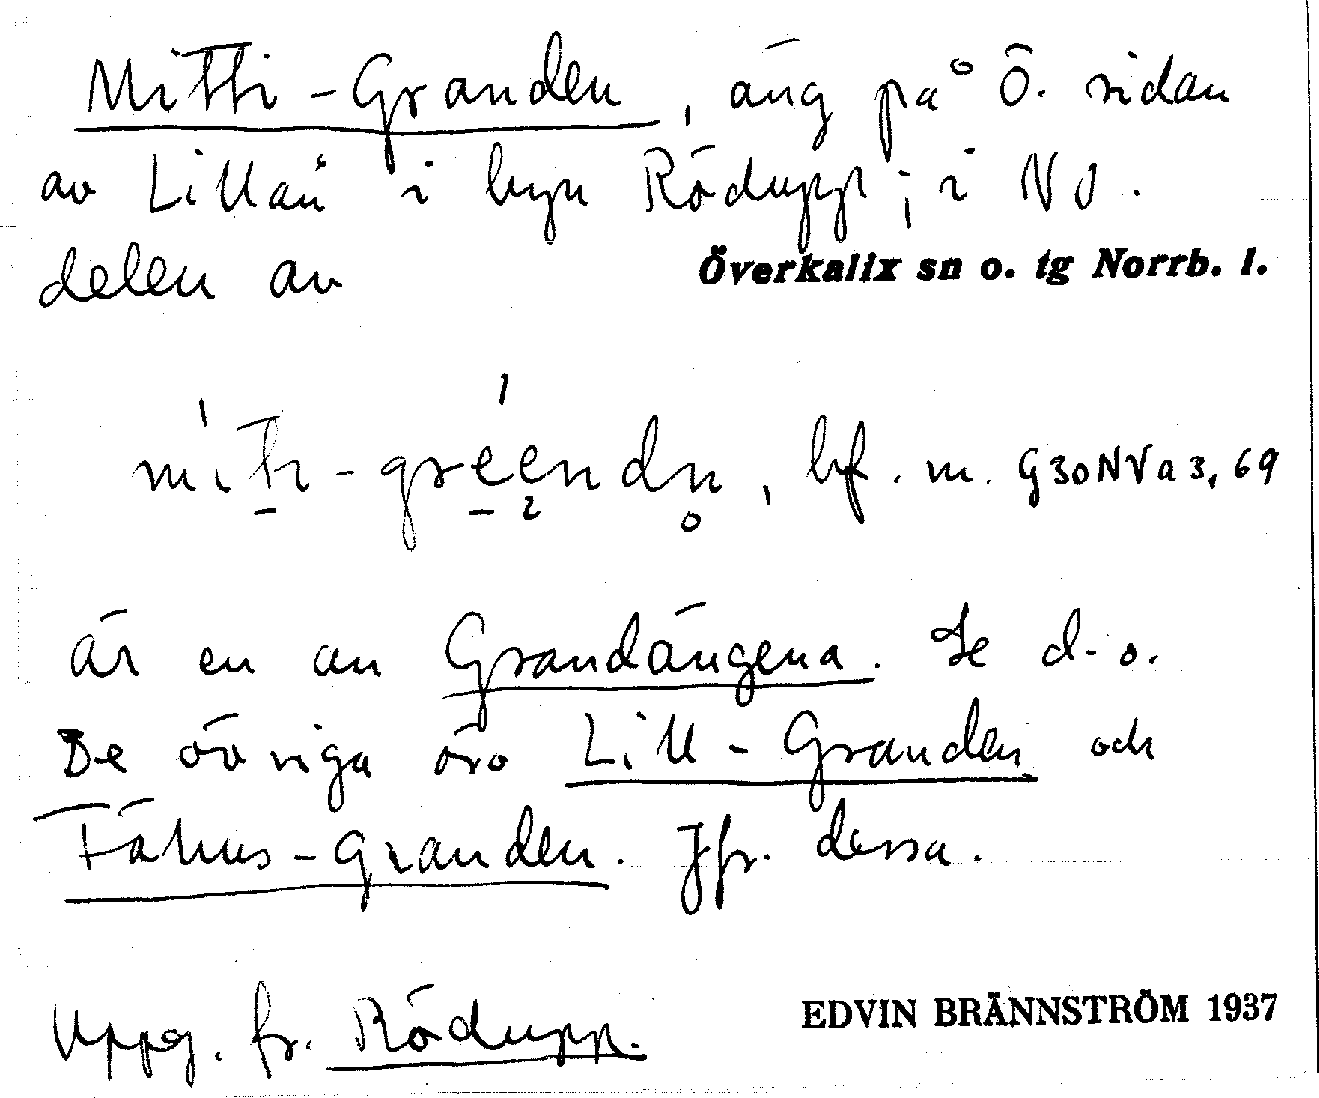 Mitti-Granden, äng på Ö. sidan
av Lillån i byn Rödupp; i NO.
delen av Överkalix sn o. tg Norrb. l.
bf. m. G30NVa3,69
är en av Grandängena. Se d.o.
De övriga äro Lill-Granden och
Fähus-Granden. Jfr. dessa.
Uppg. fr. Rödupp. EDVIN BRÄNNSTRÖM 1937